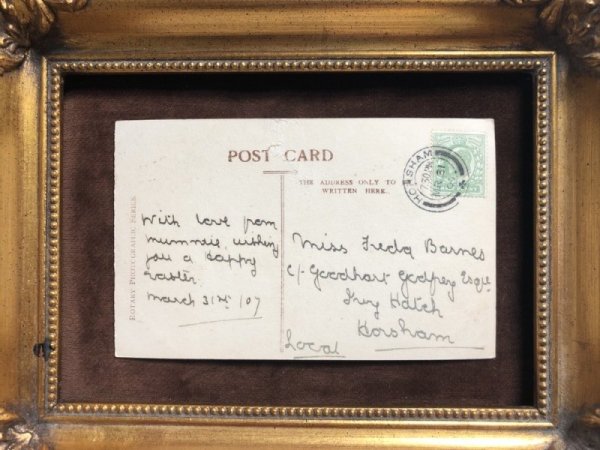 POST CARD
THE ADDRESS ONLY TO BE
WRITTEN HERE.
ROTARY PHOTOGRAPHIC SERIES
HORSHAM
7.30 PM
MR 31
With love from
mummie, wishing
you a happy
Easter
March 31st /07
Miss Freda Barnes
c/- Goodhart Godfrey Esqre
Ivy Hatch
Horsham
Local